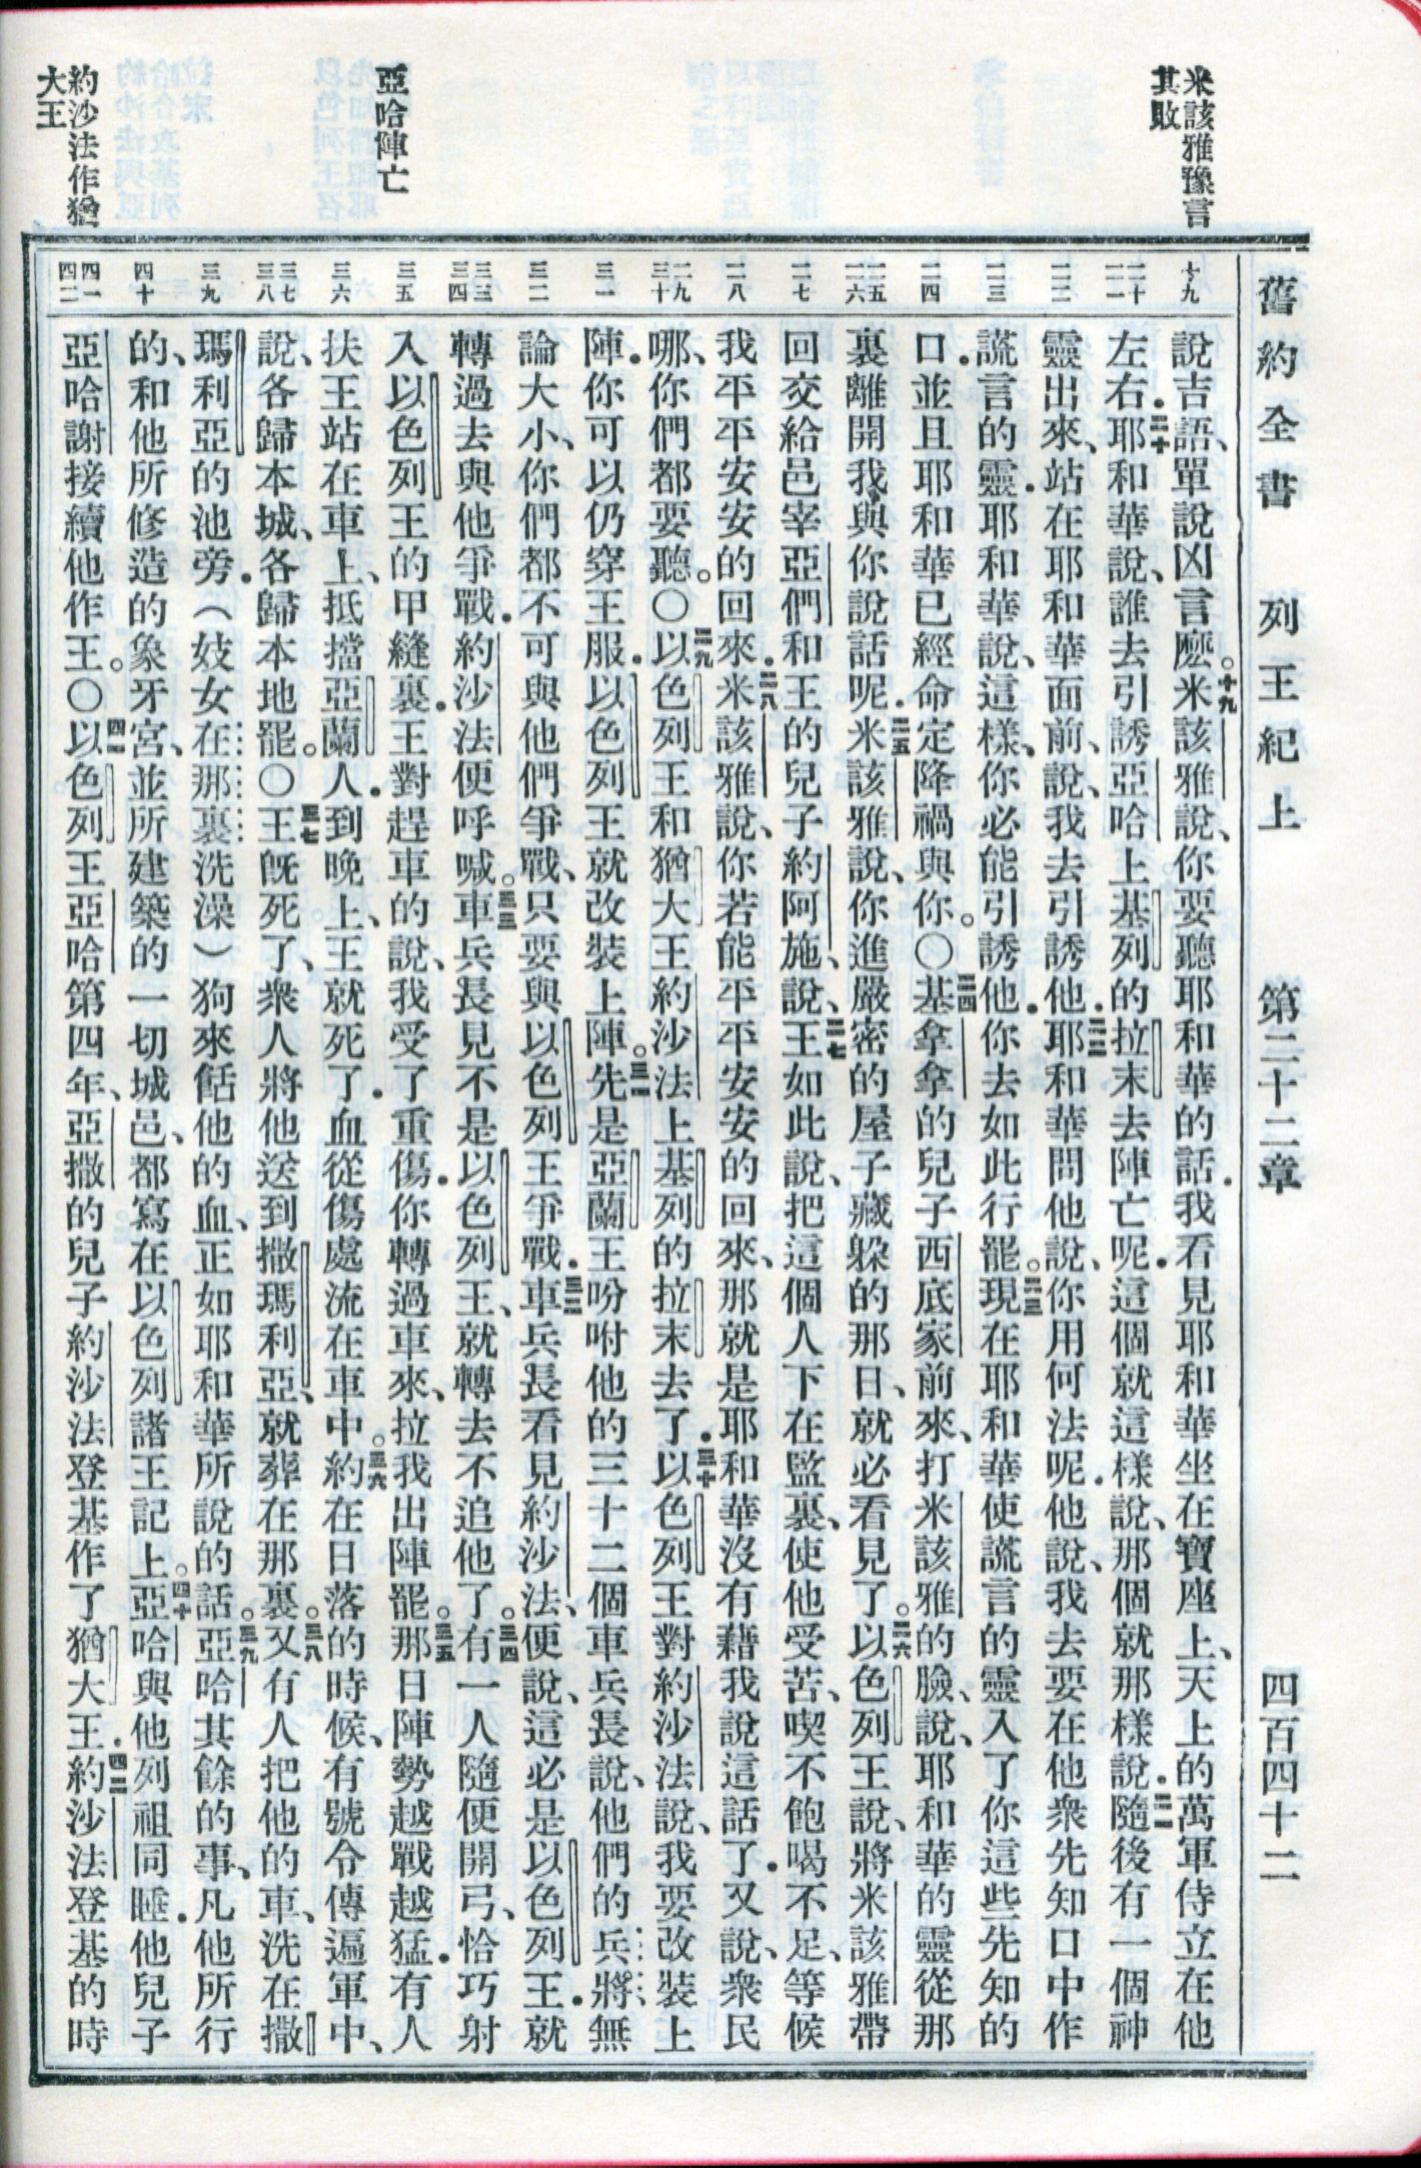 舊約全書 列王紀上 第二十二章 四百四十二
米該雅豫言
其敗
亞哈陣亡
約沙法作猶
大王
十九
二十
二一
二二
二三
二四
二五
二六
二七
二八
二九
三十
三一
三二
三三
三四
三五
三六
三七
三八
三九
四十
四一
四二
說吉語、單說凶言麽。十九米該雅說、你要聽耶和華的話．我看見耶和華坐在寶座上、天上的萬軍侍立在他
左右．二十耶和華說、誰去引誘亞哈上基列的拉末去陣亡呢．這個就這樣說、那個就那樣說．二一隨後有一個神
靈出來、站在耶和華面前、說、我去引誘他．二二耶和華問他說、你用何法呢．他說、我去要在他衆先知口中作
謊言的靈．耶和華說、這樣、你必能引誘他．你去如此行罷。二三現在耶和華使謊言的靈入了你這些先知的
口．並且耶和華已經命定降禍與你。〇二四基拿拿的兒子西底家前來、打米該雅的臉、說、耶和華的靈從那
裏離開我與你說話呢．二五米該雅說、你進嚴密的屋子藏躲的那日、就必看見了。二六以色列王說、將米該雅帶
回交給邑宰亞們和王的兒子約阿施、說、二七王如此說、把這個人下在監裏、使他受苦、喫不飽喝不足、等候
我平平安安的回來．二八米該雅說、你若能平平安安的回來、那就是耶和華沒有藉我說這話了．又說、衆民
哪、你們都要聽。〇二九以色列王和猶大王約沙法上基列的拉末去了．三十以色列王對約沙法說、我要改裝上
陣．你可以仍穿王服．以色列王就改裝上陣。三一先是亞蘭王吩咐他的三十二個車兵長說、他們的兵將、無
論大小、你們都不可與他們爭戰、只要與以色列王爭戰．三二車兵長看見約沙法、便說、這必是以色列王．就
轉過去與他爭戰．約沙法便呼喊。三三車兵長見不是以色列王、就轉去不追他了。三四有一人隨便開弓、恰巧射
入以色列王的甲縫裏．王對趕車的說、我受了重傷．你轉過車來、拉我出陣罷。三五那日陣勢越戰越猛．有人
扶王站在車上、抵擋亞蘭人．到晚上、王就死了．血從傷處流在車中。三六約在日落的時候、有號令傳遍軍中、
說、各歸本城、各歸本地罷。〇三七王既死了、衆人將他送到撒瑪利亞、就葬在那裏。三八又有人把他的車、洗在撒
瑪利亞的池旁．（妓女在那裏洗澡）狗來餂他的血、正如耶和華所說的話。三九亞哈其餘的事、凡他所行
的、和他所修造的象牙宮、並所建築的一切城邑、都寫在以色列諸王記上。四十亞哈與他列祖同睡．他兒子
亞哈謝接續他作王。〇四一以色列王亞哈第四年、亞撒的兒子約沙法登基作了猶大王．四二約沙法登基的時